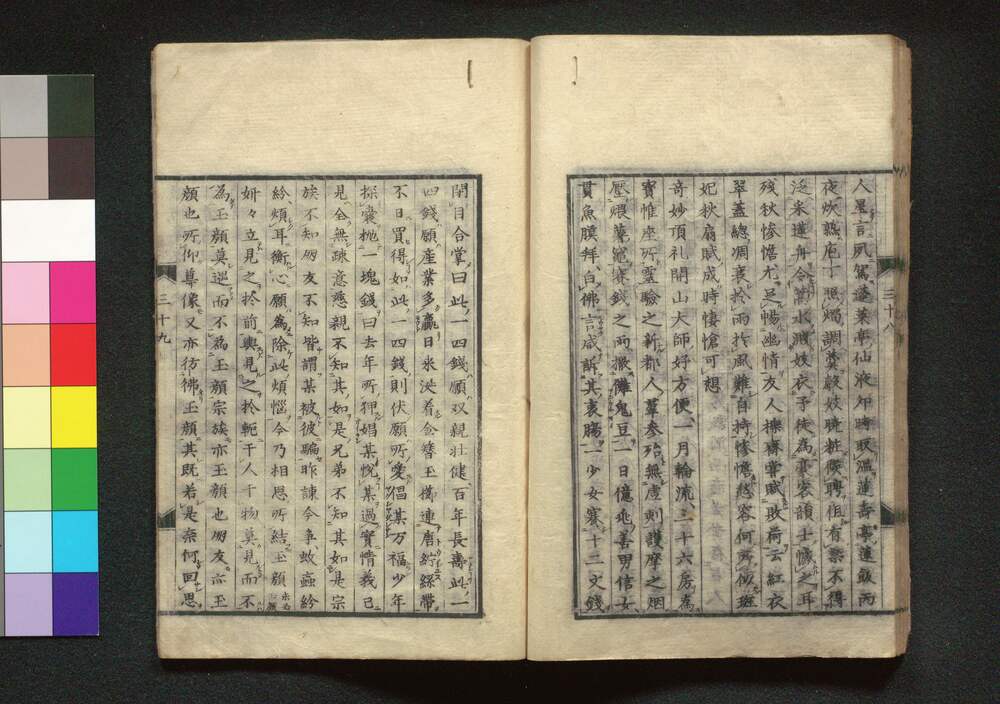 人星言夙駕蓬萊亭仙液卯時取温蓮壽亭蓮飯丙
夜炊熟庖丁照燭調羹殽妓曉粧俟聘但有禁不得
泛采蓮舟令蕩水濺妓衣子徒為裹裳韻士慽之耳
残秋惨憺尤足暢幽情友人標齋嘗賦敗荷云紅衣
翠蓋總凋衰於雨於風難自持惨憺愁容何所似班
妃秋扇賦成時悽愴可想
奇妙頂礼開山大師好方便一月輪流三十六房為
寶帷座所霊驗之新都人羣参殆無虚刻護摩之烟
壓煨薬竈賽錢之雨撒儺鬼豆一日億兆善男信女
貫魚膜拜白佛言咸訴其哀腸一少女賽十二文錢
三十八
閉目合掌曰此一四錢願双親壮健百年長壽此一
四錢願産業多贏日氷泱着金簪玉擲連唐紵繻帶
不日買得如此一四錢則伏願所愛倡某万福少年
探囊抛一塊錢曰去年所狎娼某悦某過實情義已
見全無疎意慈親不知其如是兄弟不知其如是宗
族不知朋友不知皆謂某被彼騙昨諫今争蚊蟲紛
紛煩耳衡心願為除此煩惱令乃相思所結玉顔
妍々立見之於前輿見之於軛千人千物莫見而不
為玉顔莫逕而不為玉顔宗族亦玉顔也朋友亦玉
顔也所仰尊像又亦彷彿玉顔其既若是奈何回思
三十九